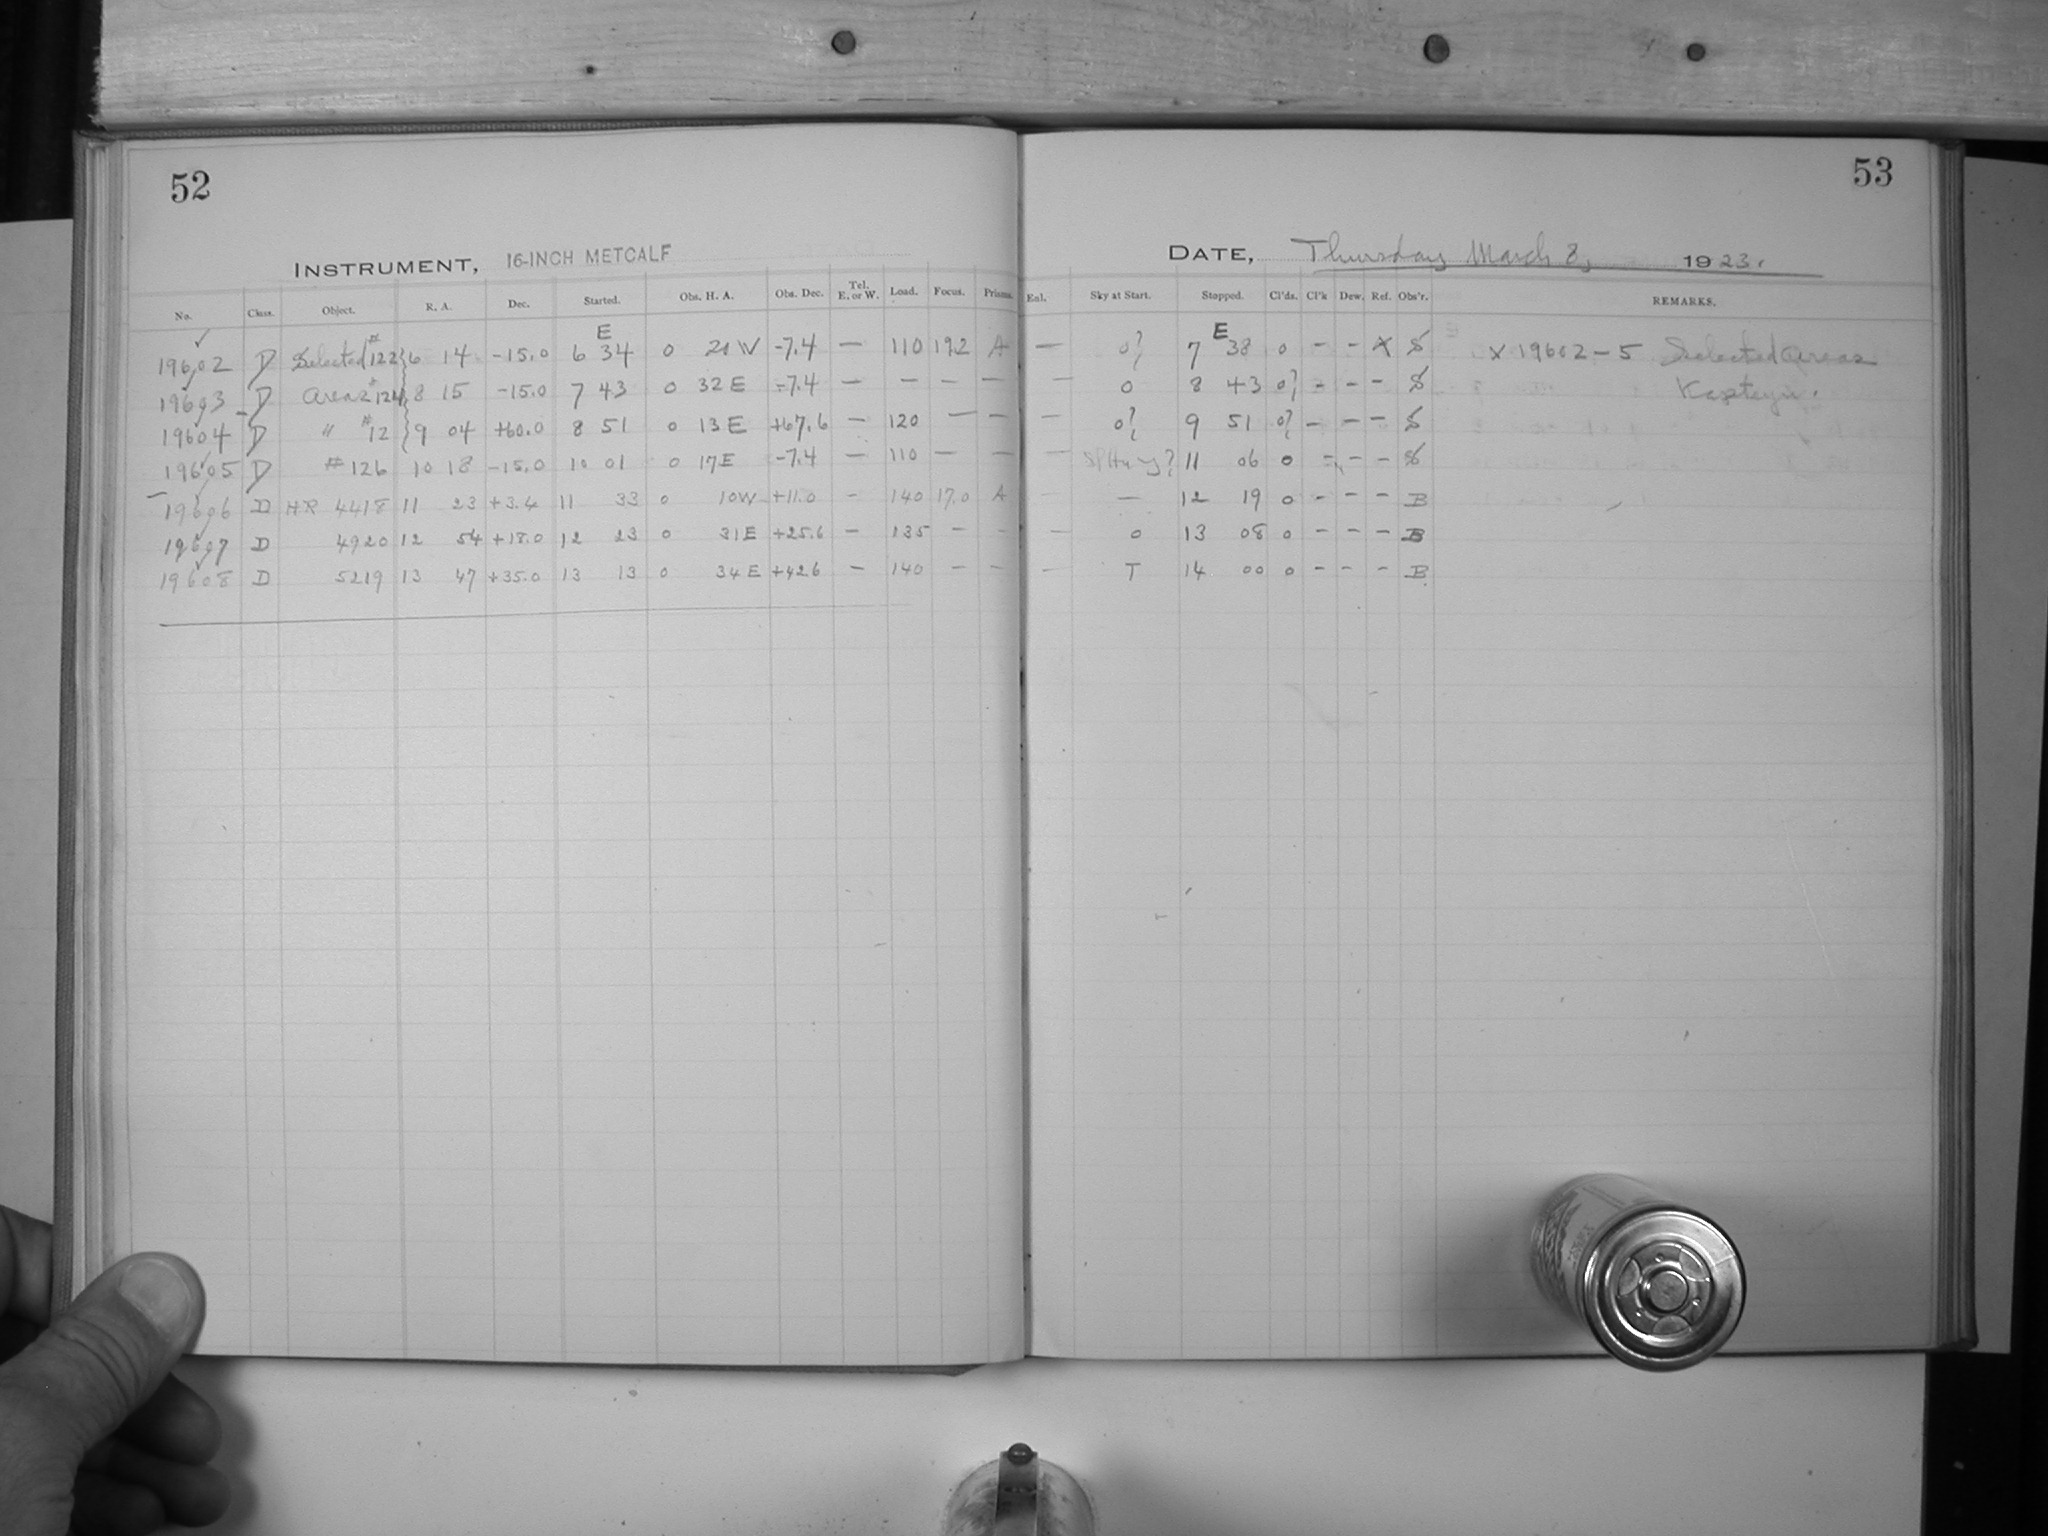 52
53
INSTRUMENT, 16-INCH METCALF
DATE, Thursday March 8, 1923.
No. Class. Object. R. A. Dec. Started. Obs. H. A. Obs. Dec. Tel. E. or W. Load. Focus. Prisms. Enl. Sky at Start. Stopped. Cl'ds. Cl'k Dew. Ref. Obs'r. REMARKS.
E E
19602 D Selected #122 6 14 -15.0 6 34 0 21 W -7.4 — 110 19.2 A — 0? 7 38 0 - - X S X 19602-5 Selected Areas
19603 D Areas #124 8 15 -15.0 7 43 0 32 E -7.4 — — — — — 0 8 43 0? - - - S Kapteyn.
19604 D " #12 9 04 +60.0 8 51 0 13 E +67.6 — 120 — — — 0? 9 51 0? - - - S
19605 D #126 10 18 -15.0 10 01 0 17 E -7.4 — 110 — — — 11 06 0 - - - S
19606 D HR 4418 11 23 +3.4 11 33 0 10 W +11.0 - 140 17.0 A — — 12 19 0 - - - B
19607 D 4920 12 54 +18.0 12 23 0 31 E +25.6 — 135 - - — 0 13 08 0 - - - B
19608 D 5219 13 47 +35.0 13 13 0 34 E +42.6 — 140 — — — T 14 00 0 - - - B